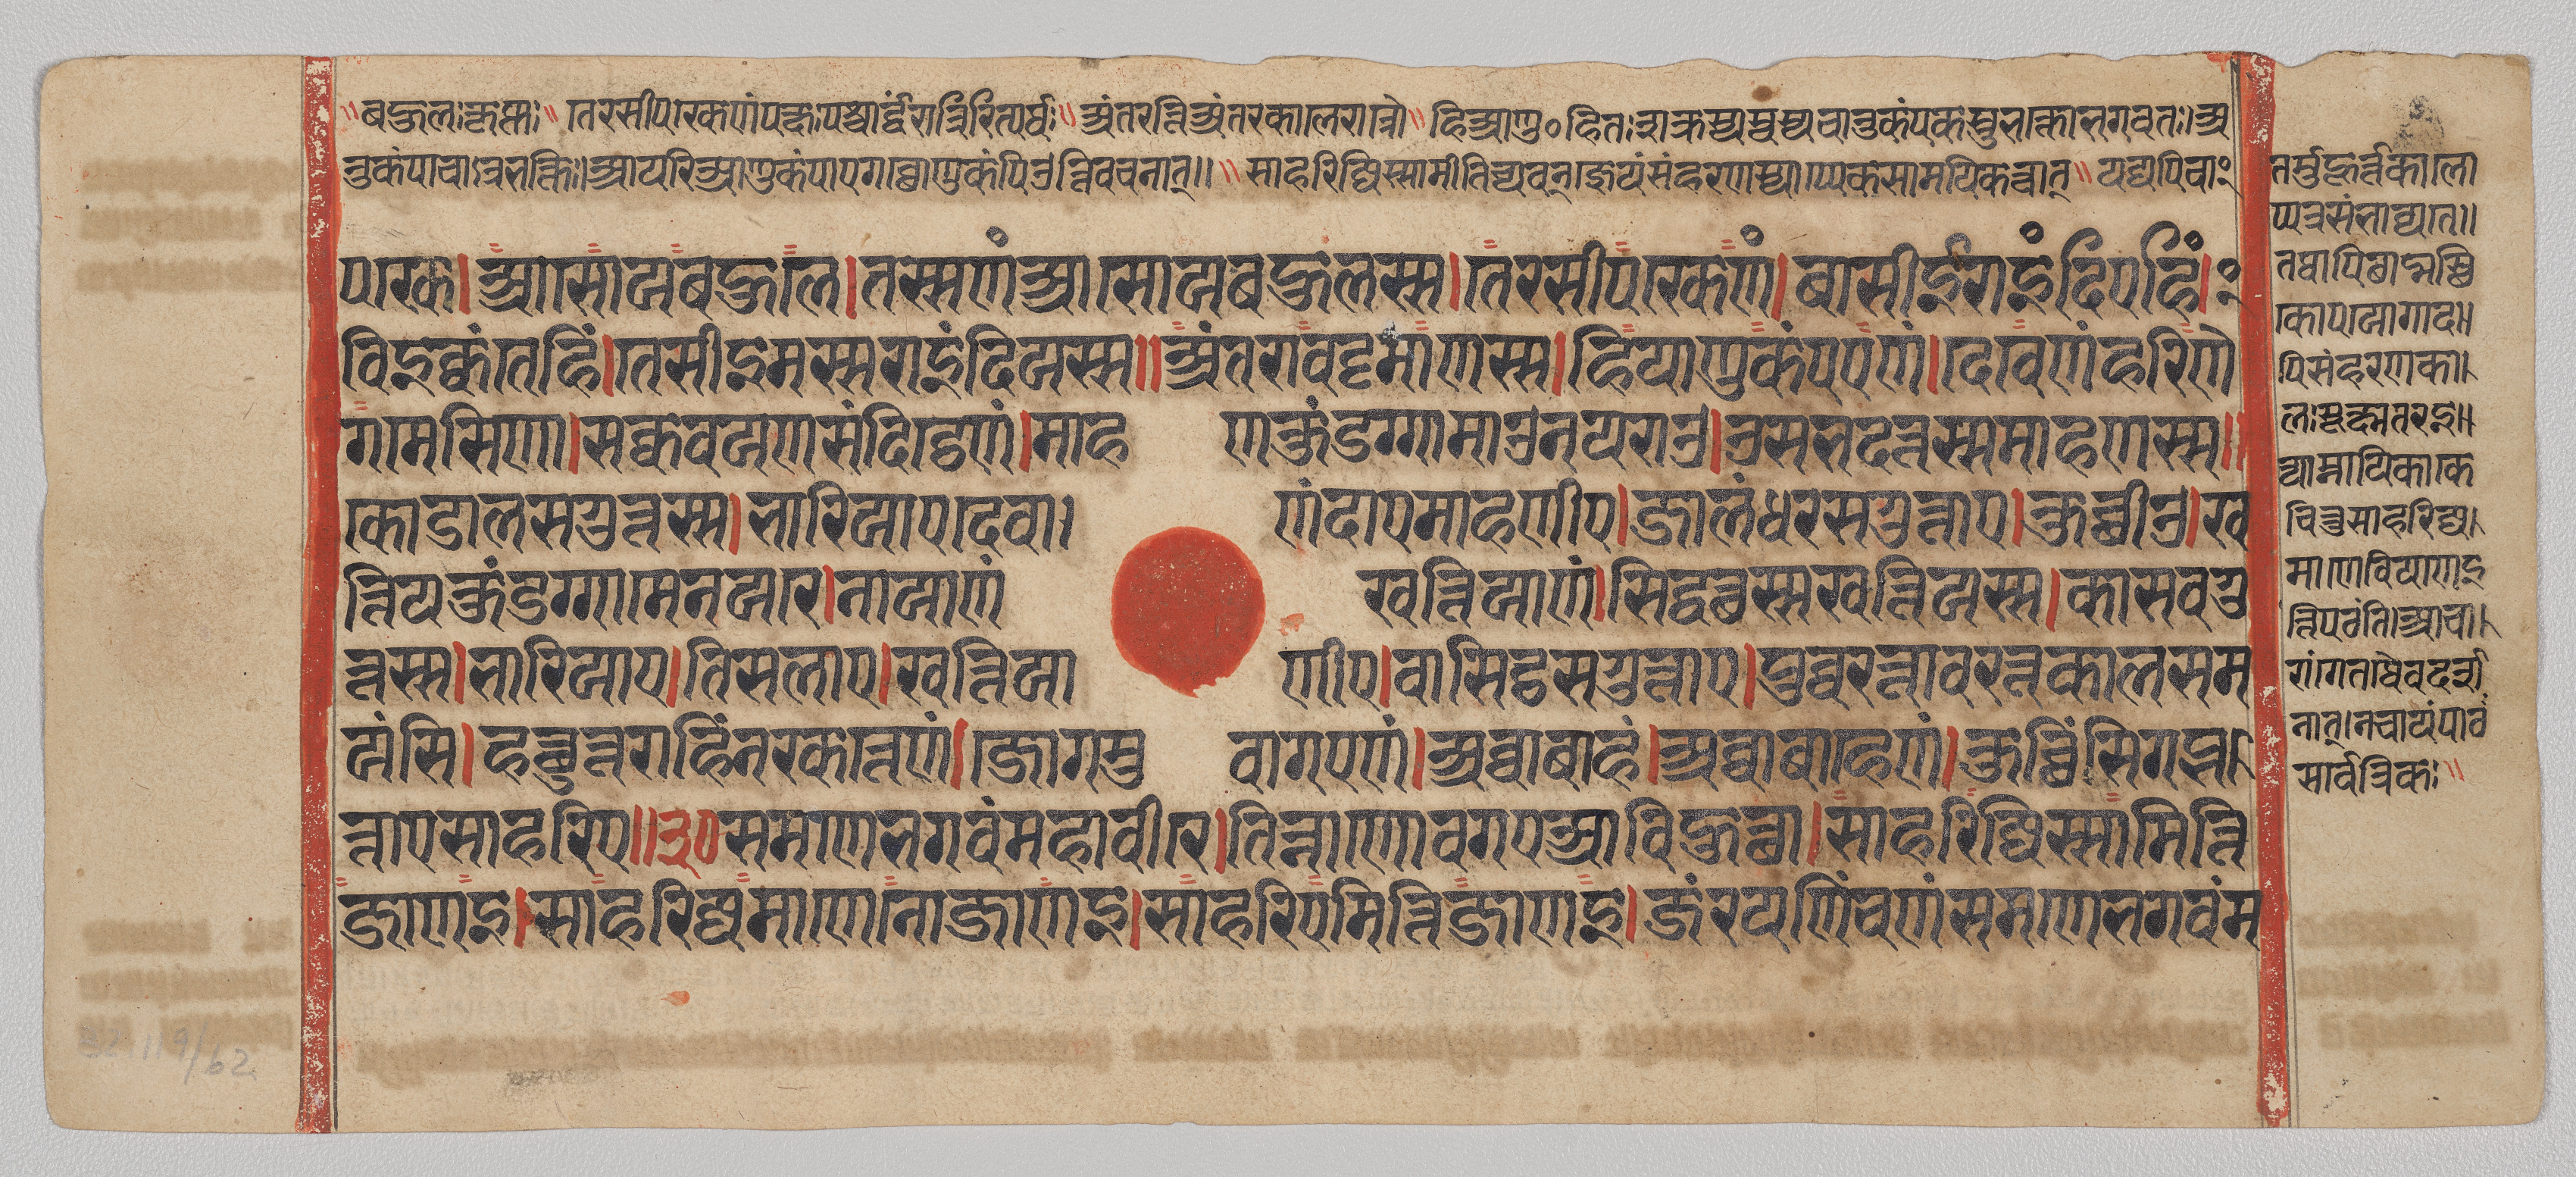 ॥बहुलः कृष्णः॥ तेरसीपरकेणं पक्षः पश्चार्द्धं रात्रिरित्यर्थः॥ अंतरत्ति अंतरकाले रात्रौ॥ हिआणु० हितः शक्रस्य स्वस्य चानुकंपकस्तु भक्तो भगवतः। अ
नुकंपा चात्र भक्तिः। आयरिअणुकंपाए गच्छोणुकंपिउत्ति वचनात्॥ ॥साहरिज्जिस्सामीति च्यवनज्ञेयं संहरणस्याप्येकसामयिकत्वात्॥ यद्यपि चां
परके। आसोयबहुले। तस्सणं आसोयबहुलस्स। तेरसीपरकेणं। बासीइराइंदिएहिं।
विइक्कंतेहिं। तेसीइमस्सराइंदियस्स॥ अंतरावट्टमाणस्स। हियाणुकंपएणं। देवेणं हरिणे
गमेसिणा। सक्कवयणसंदिट्ठेणं। माहणकुंडग्गामाउनयराउ। उसभदत्तस्समाहणस्स॥
कोडालसगुत्तस्स। भारियाए देवाणंदाएमाहणीए। जालंधरसगुत्ताए। कुच्छीउ। ख
त्तियकुंडग्गामेनयरे। नायाणं खत्तियाणं। सिद्धत्थस्सखत्तियस्स। कासवगु
त्तस्स। भारियाए। तिसलाए। खत्तियाणीए। वासिट्ठसगुत्ताए। पुव्वरत्तावरत्तकालसम
यंसि। हत्थुत्तराहिंनरकत्तेणं। जोगमुवागएणं। अव्वाबाहं। अव्वाबाहेणं। कुच्छिंसिगब्भ
त्ताएसाहरिए॥३०समणेभगवंमहावीरे। तिन्नाणोवगएआविहुत्था। साहरिज्जिस्सामित्ति
जाणइ। साहरिज्जमाणेनोजाणइ। साहरिएमित्तिजाणइ। जंरयणिंचणंसमणेभगवंम
तर्मुहूर्त्तकालो
प्यत्र संभाव्येत॥
तथापि छाद्मस्थि
कोपयोगाद॥
पि संहरणका।
लः सूक्ष्मतर इ॥
त्याम्नायिकाः के
चित्तु साहरिज्ज।
माणे वियाणइ
त्ति पठंति। आचा।
रांगे तथैव दर्श
नात्। न चायं पाठः
सार्वत्रिकः॥
32.119/62